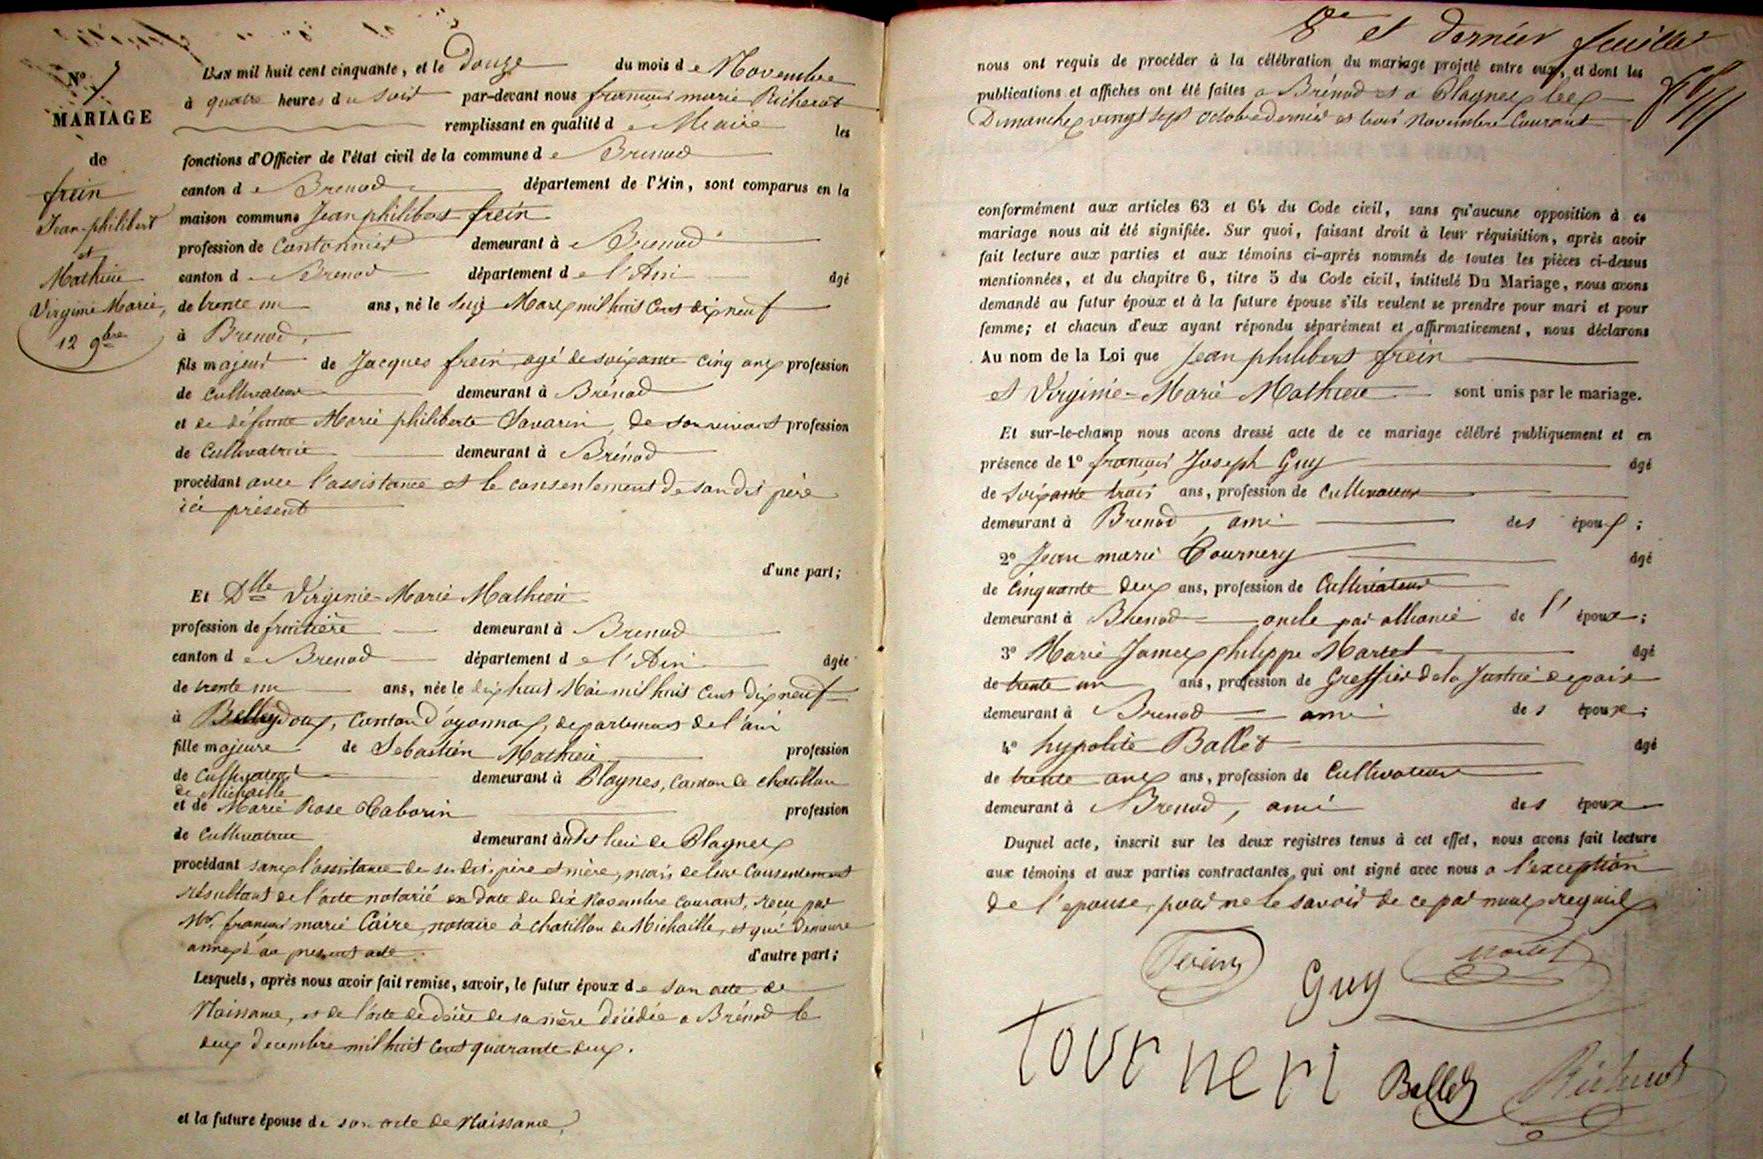 N° 7
MARIAGE
de
frein
Jean-philibert
et
Mathieu
Virginie Marie,
12 9bre
L'AN mil huit cent cinquante, et le Douze du mois de Novembre
à quatre heures du soir par-devant nous françois marie Richerot
remplissant en qualité de Maire les
fonctions d'Officier de l'état civil de la commune de Brenod
canton de Brenod département de l'Ain, sont comparus en la
maison commune Jean philibert frein
profession de Cantonnier demeurant à Brenod
canton de Brenod département de l'Ain âgé
de trente un ans, né le seize Mars mil huit cent dix neuf
à Brenod,
fils majeur de Jacques frein, agé de soixante cinq ans profession
de cultivateur demeurant à Brénod
et de défunte Marie philiberte Savarin, de son vivant profession
de Cultivatrice demeurant à Brénod
procédant avec l'assistance et le consentement de son dit père
ici présent
d'une part;
Et Dlle Virginie-Marie Mathieu
profession de fruitière demeurant à Brenod
canton de Brenod département de l'Ain âgée
de trente un ans, née le dix huit Mai mil huit cent dix neuf
à Belleydoux, Canton d'oyonnax, departement de l'ain
fille majeure de Sebastien Mathieu profession
de Cultivateur demeurant à Plagnes, Canton de chatillon
de Michaille
et de Marie Rose Taborin profession
de Cultivatrice demeurant audit lieu de Plagnes
procédant sans l'assistance de ses dits père et mère, mais de leur Consentement
résultant de l'acte notarié en date du dix Novembre courant, reçu par
Me françois marie Caire, notaire à chatillon de Michaille, et qui demeure
annexé au present acte. d'autre part;
Lesquels, après nous avoir fait remise, savoir, le futur époux de son acte de
Naissance, et de l'acte de décès de sa mère décédée a Brénod le
deux decembre mil huit cent quarante deux.
et la future épouse de son acte de Naissance,
8e et dernier feuillet
nous ont requis de procéder à la célébration du mariage projeté entre eux, et dont les
publications et affiches ont été faites a Brénod et a Plagnes les
Dimanches vingt sept octobre dernier et trois Novembre Courant
conformément aux articles 63 et 64 du Code civil, sans qu'aucune opposition à ce
mariage nous ait été signifiée. Sur quoi, faisant droit à leur réquisition, après avoir
fait lecture aux parties et aux témoins ci-après nommés de toutes les pièces ci-dessus
mentionnées, et du chapitre 6, titre 5 du Code civil, intitulé Du Mariage, nous avons
demandé au futur époux et à la future épouse s'ils veulent se prendre pour mari et pour
femme; et chacun d'eux ayant répondu séparément et affirmativement, nous déclarons
Au nom de la Loi que Jean philibert frein
et Virginie-Marie Mathieu sont unis par le mariage.
Et sur-le-champ nous avons dressé acte de ce mariage célébré publiquement et en
présence de 1° françois Joseph Guy âgé
de soixante trois ans, profession de Cultivateur
demeurant à Brenod, ami des époux;
2° Jean marie Tournery âgé
de Cinquante deux ans, profession de Cultivateur
demeurant à Brenod oncle par alliance de l'époux;
3° Marie James philippe Martet âgé
de trente un ans, profession de Greffier de la Justice de paix
demeurant à Brenod ami des époux;
4° hypolite Ballet âgé
de trente ans ans, profession de Cultivateur
demeurant à Brenod, ami des époux
Duquel acte, inscrit sur les deux registres tenus à cet effet, nous avons fait lecture
aux témoins et aux parties contractantes, qui ont signé avec nous a l'exception
de l'epouse, pour ne le savoir de ce par nous requis
Frein
Guy
Martet
Tourneri
Ballet
Richerot